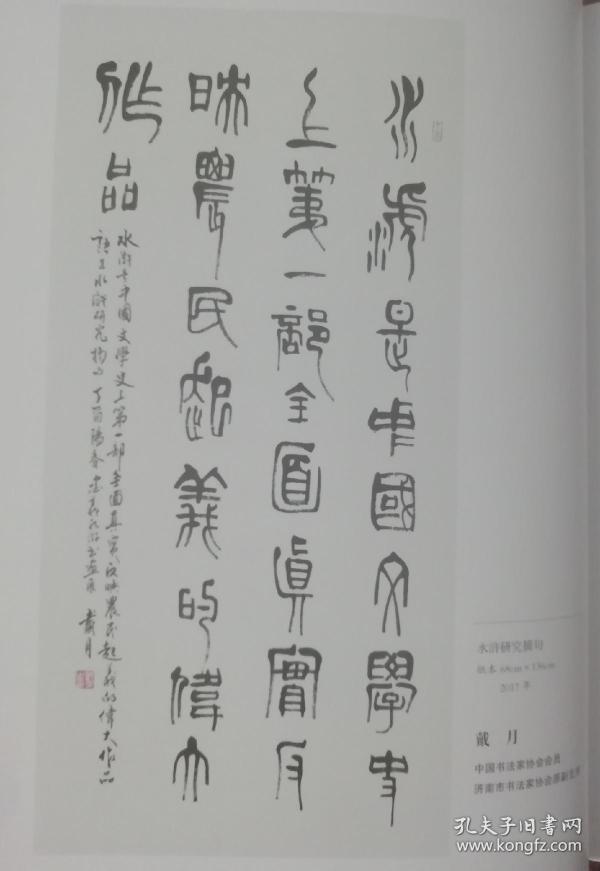 水滸是中國文學史
上第一部全面真實反
映農民起義的偉大
作品
水滸是中國文學史上第一部全面真實反映農民起義的偉大作品
語出水滸研究摘句 丁酉陽春 戴月
水浒研究摘句
纸本 68cm×136cm
2017 年
戴 月
中国书法家协会会员
济南市书法家协会原副主席
孔夫子旧书网
www.kongfz.com